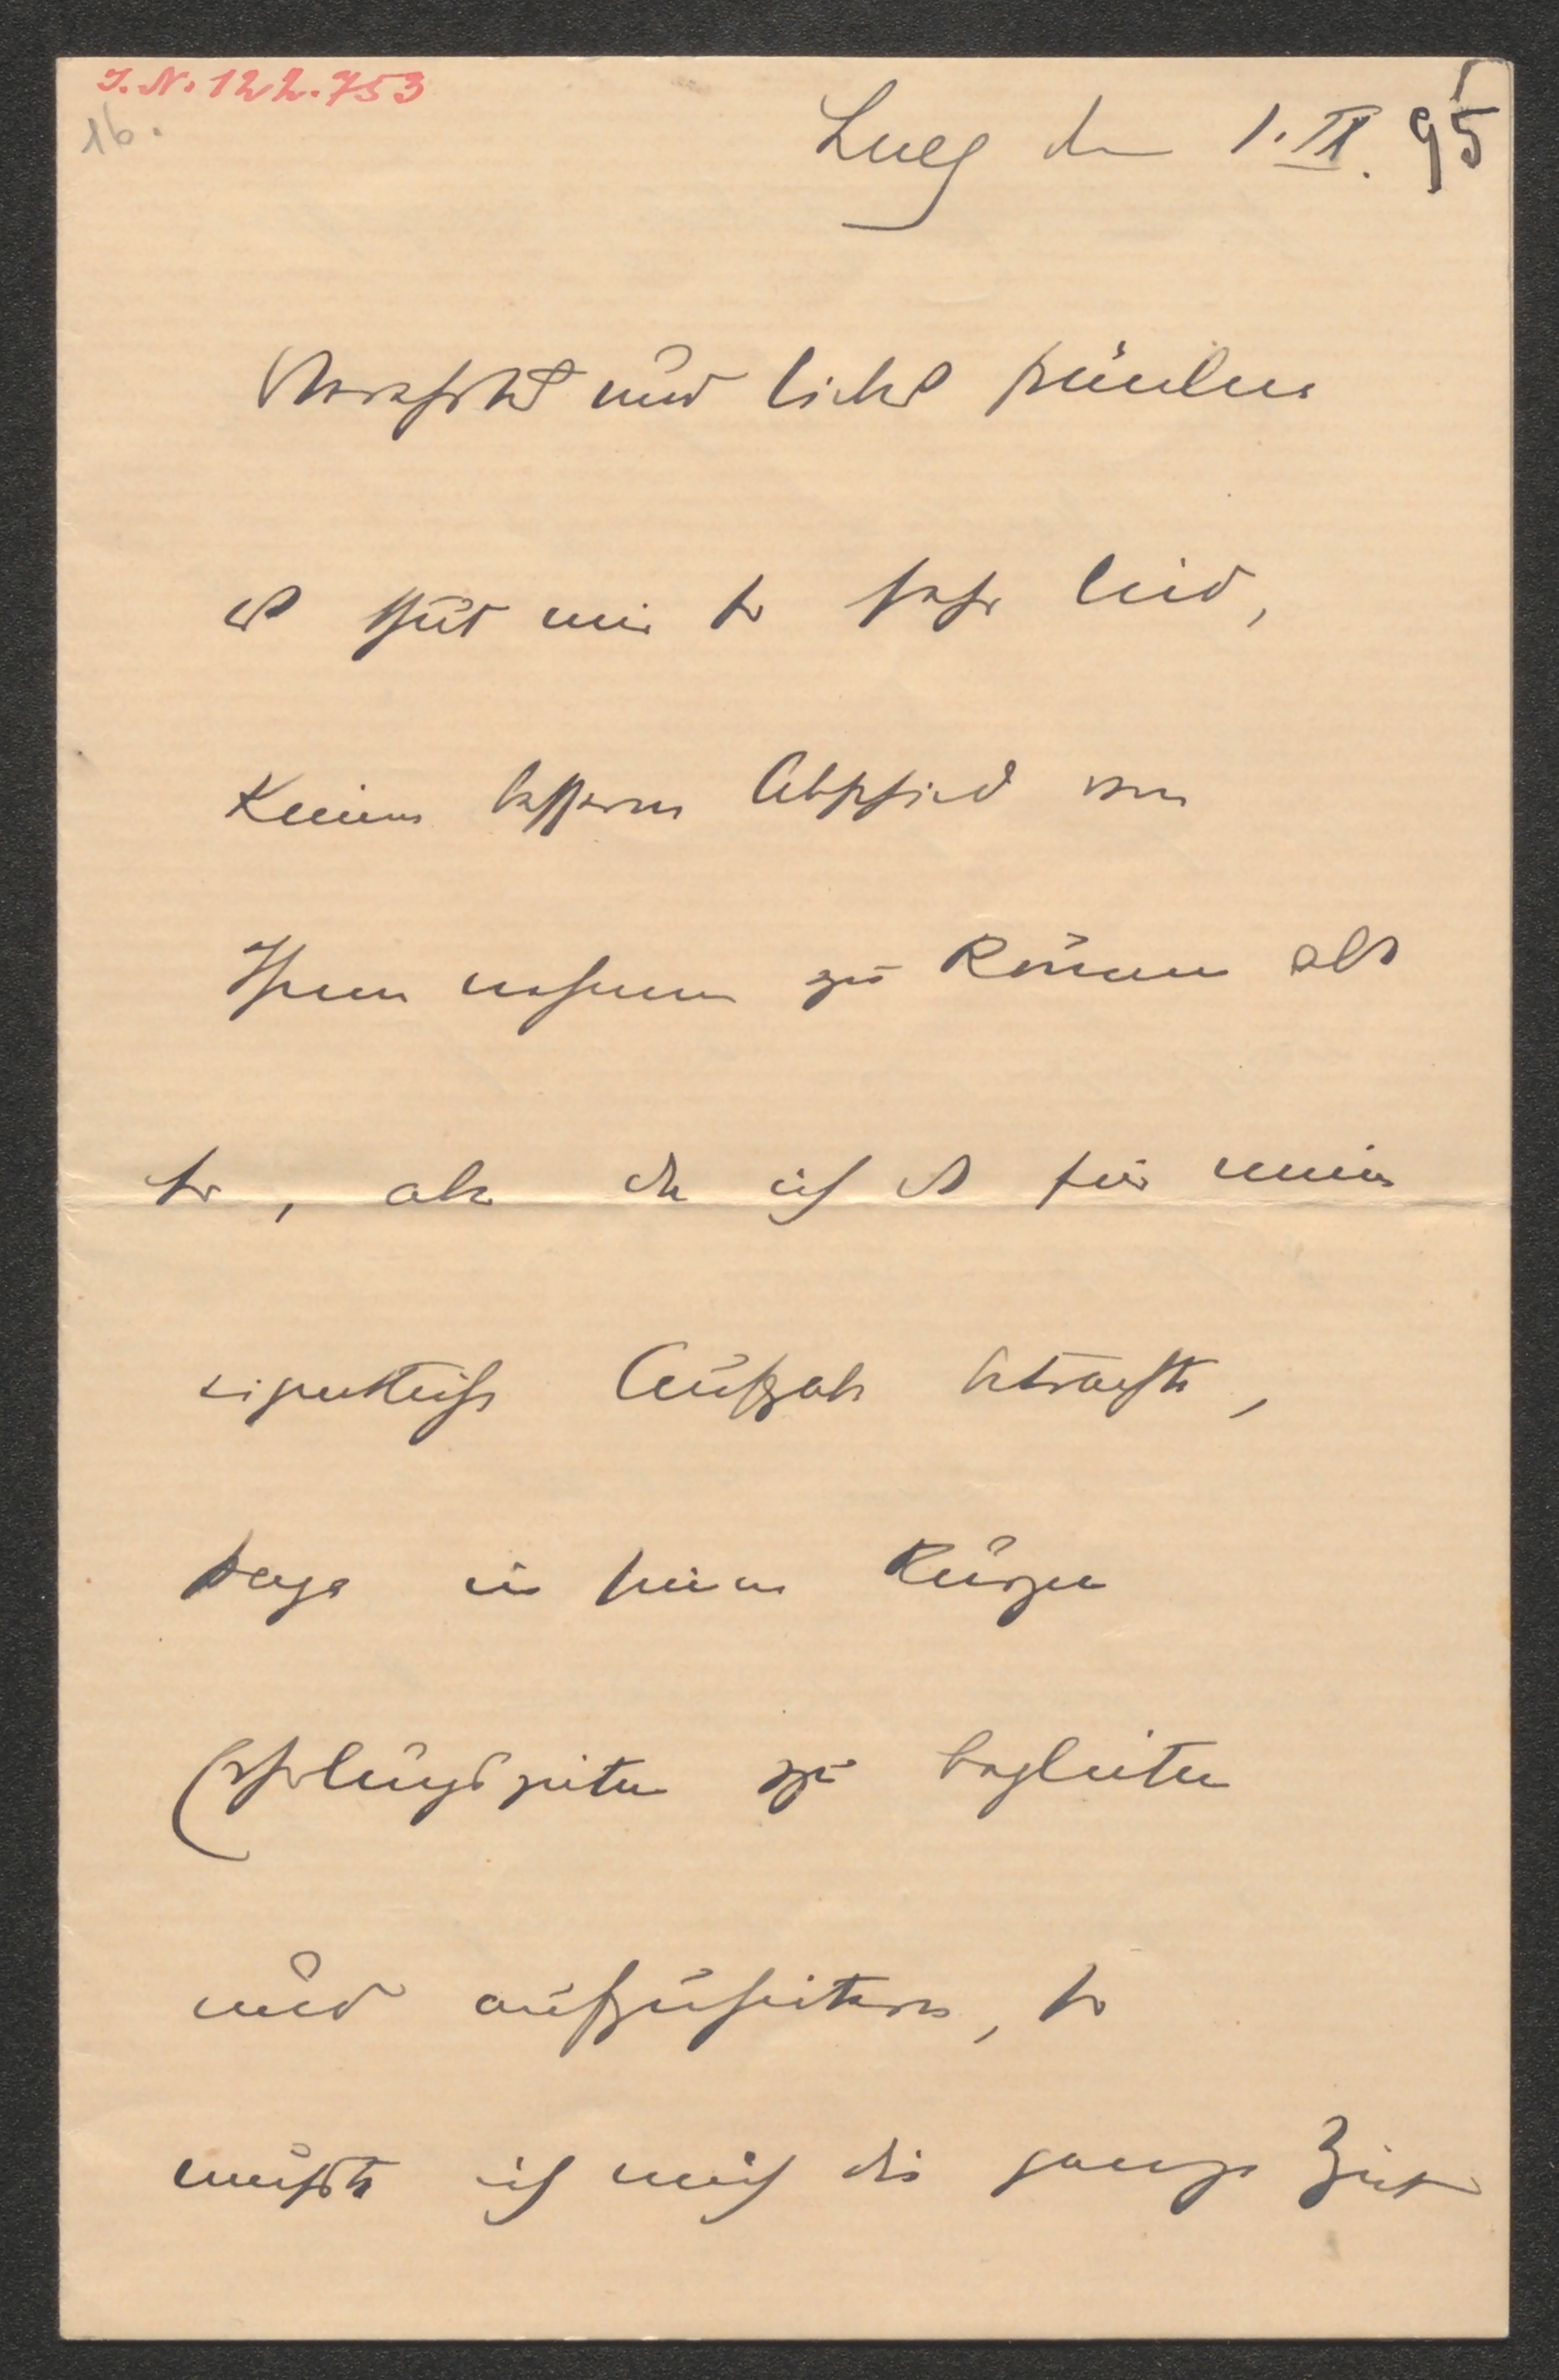 J. N. 122.753
16.
Lueg den 1. IX. 95
Verehrtes und liebes Fräulein
es thut mir so sehr leid,
keinen bessern Abschied von
Ihnen nehmen zu können als
so, aber da ich es für meine
eigentliche Aufgabe betrachte,
Hugo in seinen kurzen
Erholungszeiten zu begleiten
und aufzuheitern, so
mußte ich mich die ganze Zeit